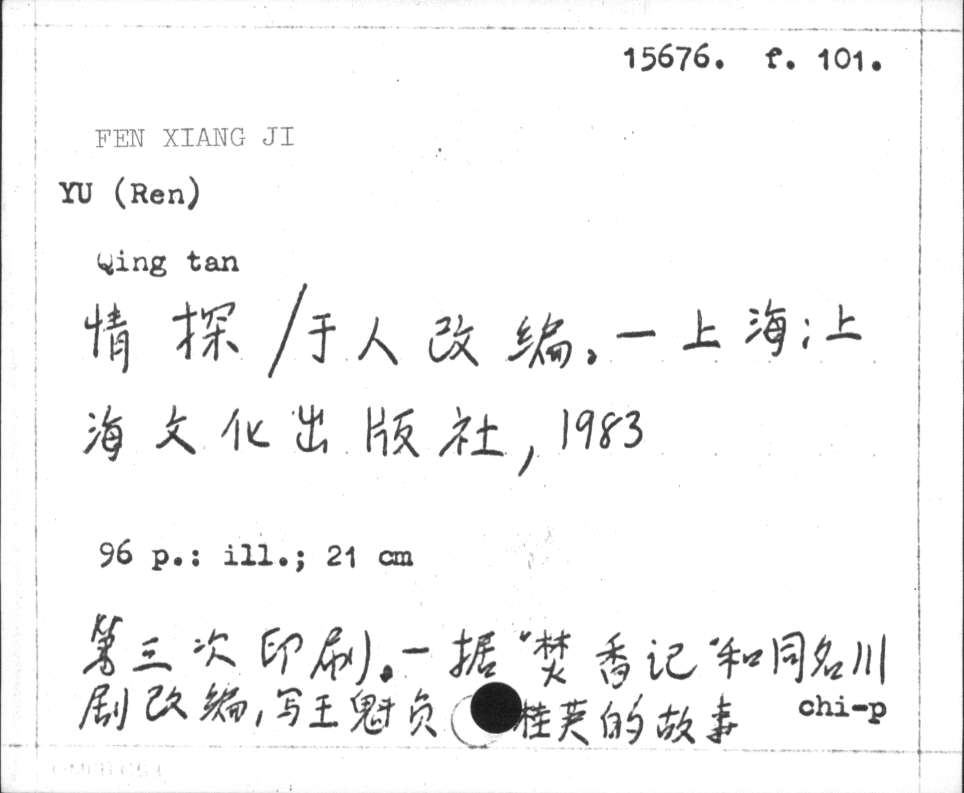 15676. f. 101.
FEN XIANG JI
YU (Ren)
Qing tan
情探/于人改编。—上海:上
海文化出版社, 1983
96 p.: ill.; 21 cm
第三次印刷。—据"焚香记"和同名川
剧改编,写王魁负 桂英的故事
chi-p